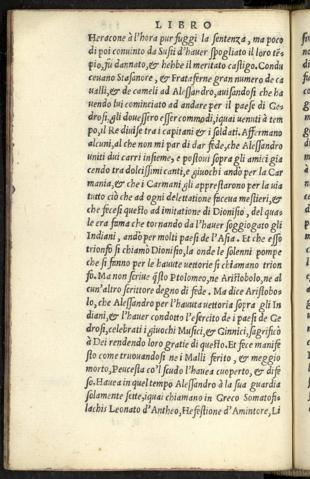 LIBRO
Heracone à l'hora pur fuggì la sentenza, ma poco
di poi conuinto da Susii d'hauer spogliato il loro tē-
pio, fù dannato, & hebbe il meritato castigo. Condu
ceuano Stasanore, & Frataferne gran numero de ca
ualli, & de cameli ad Alessandro, auisandosi che ha
uendo lui cominciato ad andare per il paese di Ge-
drosi, gli douessero esser commodi, iquai uenuti à tem
po, il Re diuise tra i capitani & i soldati. Affermano
alcuni, al che non mi par di dar fede, che Alessandro
uniti dui carri insieme, e postoui sopra gli amici gia
cendo tra dolcissimi canti, e giuochi andò per la Car
mania, & che i Carmani gli apprestarono per la uia
tutto ciò che ad ogni delettatione faceua mestieri, &
che fece questo ad imitatione di Dionisio, del qua-
le era fama che tornando da l'hauer soggiogato gli
Indiani, andò per molti paesi de l'Asia. Et che esso
trionfo si chiamò Dionisio, la onde le solenni pompe
che si fanno per le hauute uettorie si chiamano trion
fo. Ma non scriue q̄sto Ptolomeo, ne Aristobolo, ne al
cun'altro scrittore degno di fede. Ma dice Aristobo-
lo, che Alessandro per l'hauuta uettoria sopra gli In
diani, & l'hauer condotto l'esercito de i paesi de Ge
drosi, celebrati i giuochi Musici, & Ginnici, sagrificò
à Dei rendendo loro gratie di questo. Et fece manife
sto come truouandosi ne i Malli ferito, & meggio
morto, Peucesta co'l scudo l'hauea cuoperto, & dife
so. Hauea in quel tempo Alessandro à la sua guardia
solamente sette, iquai chiamano in Greco Somatofi-
lachi: Leonato d'Antheo, Hefestione d'Amintore, Li